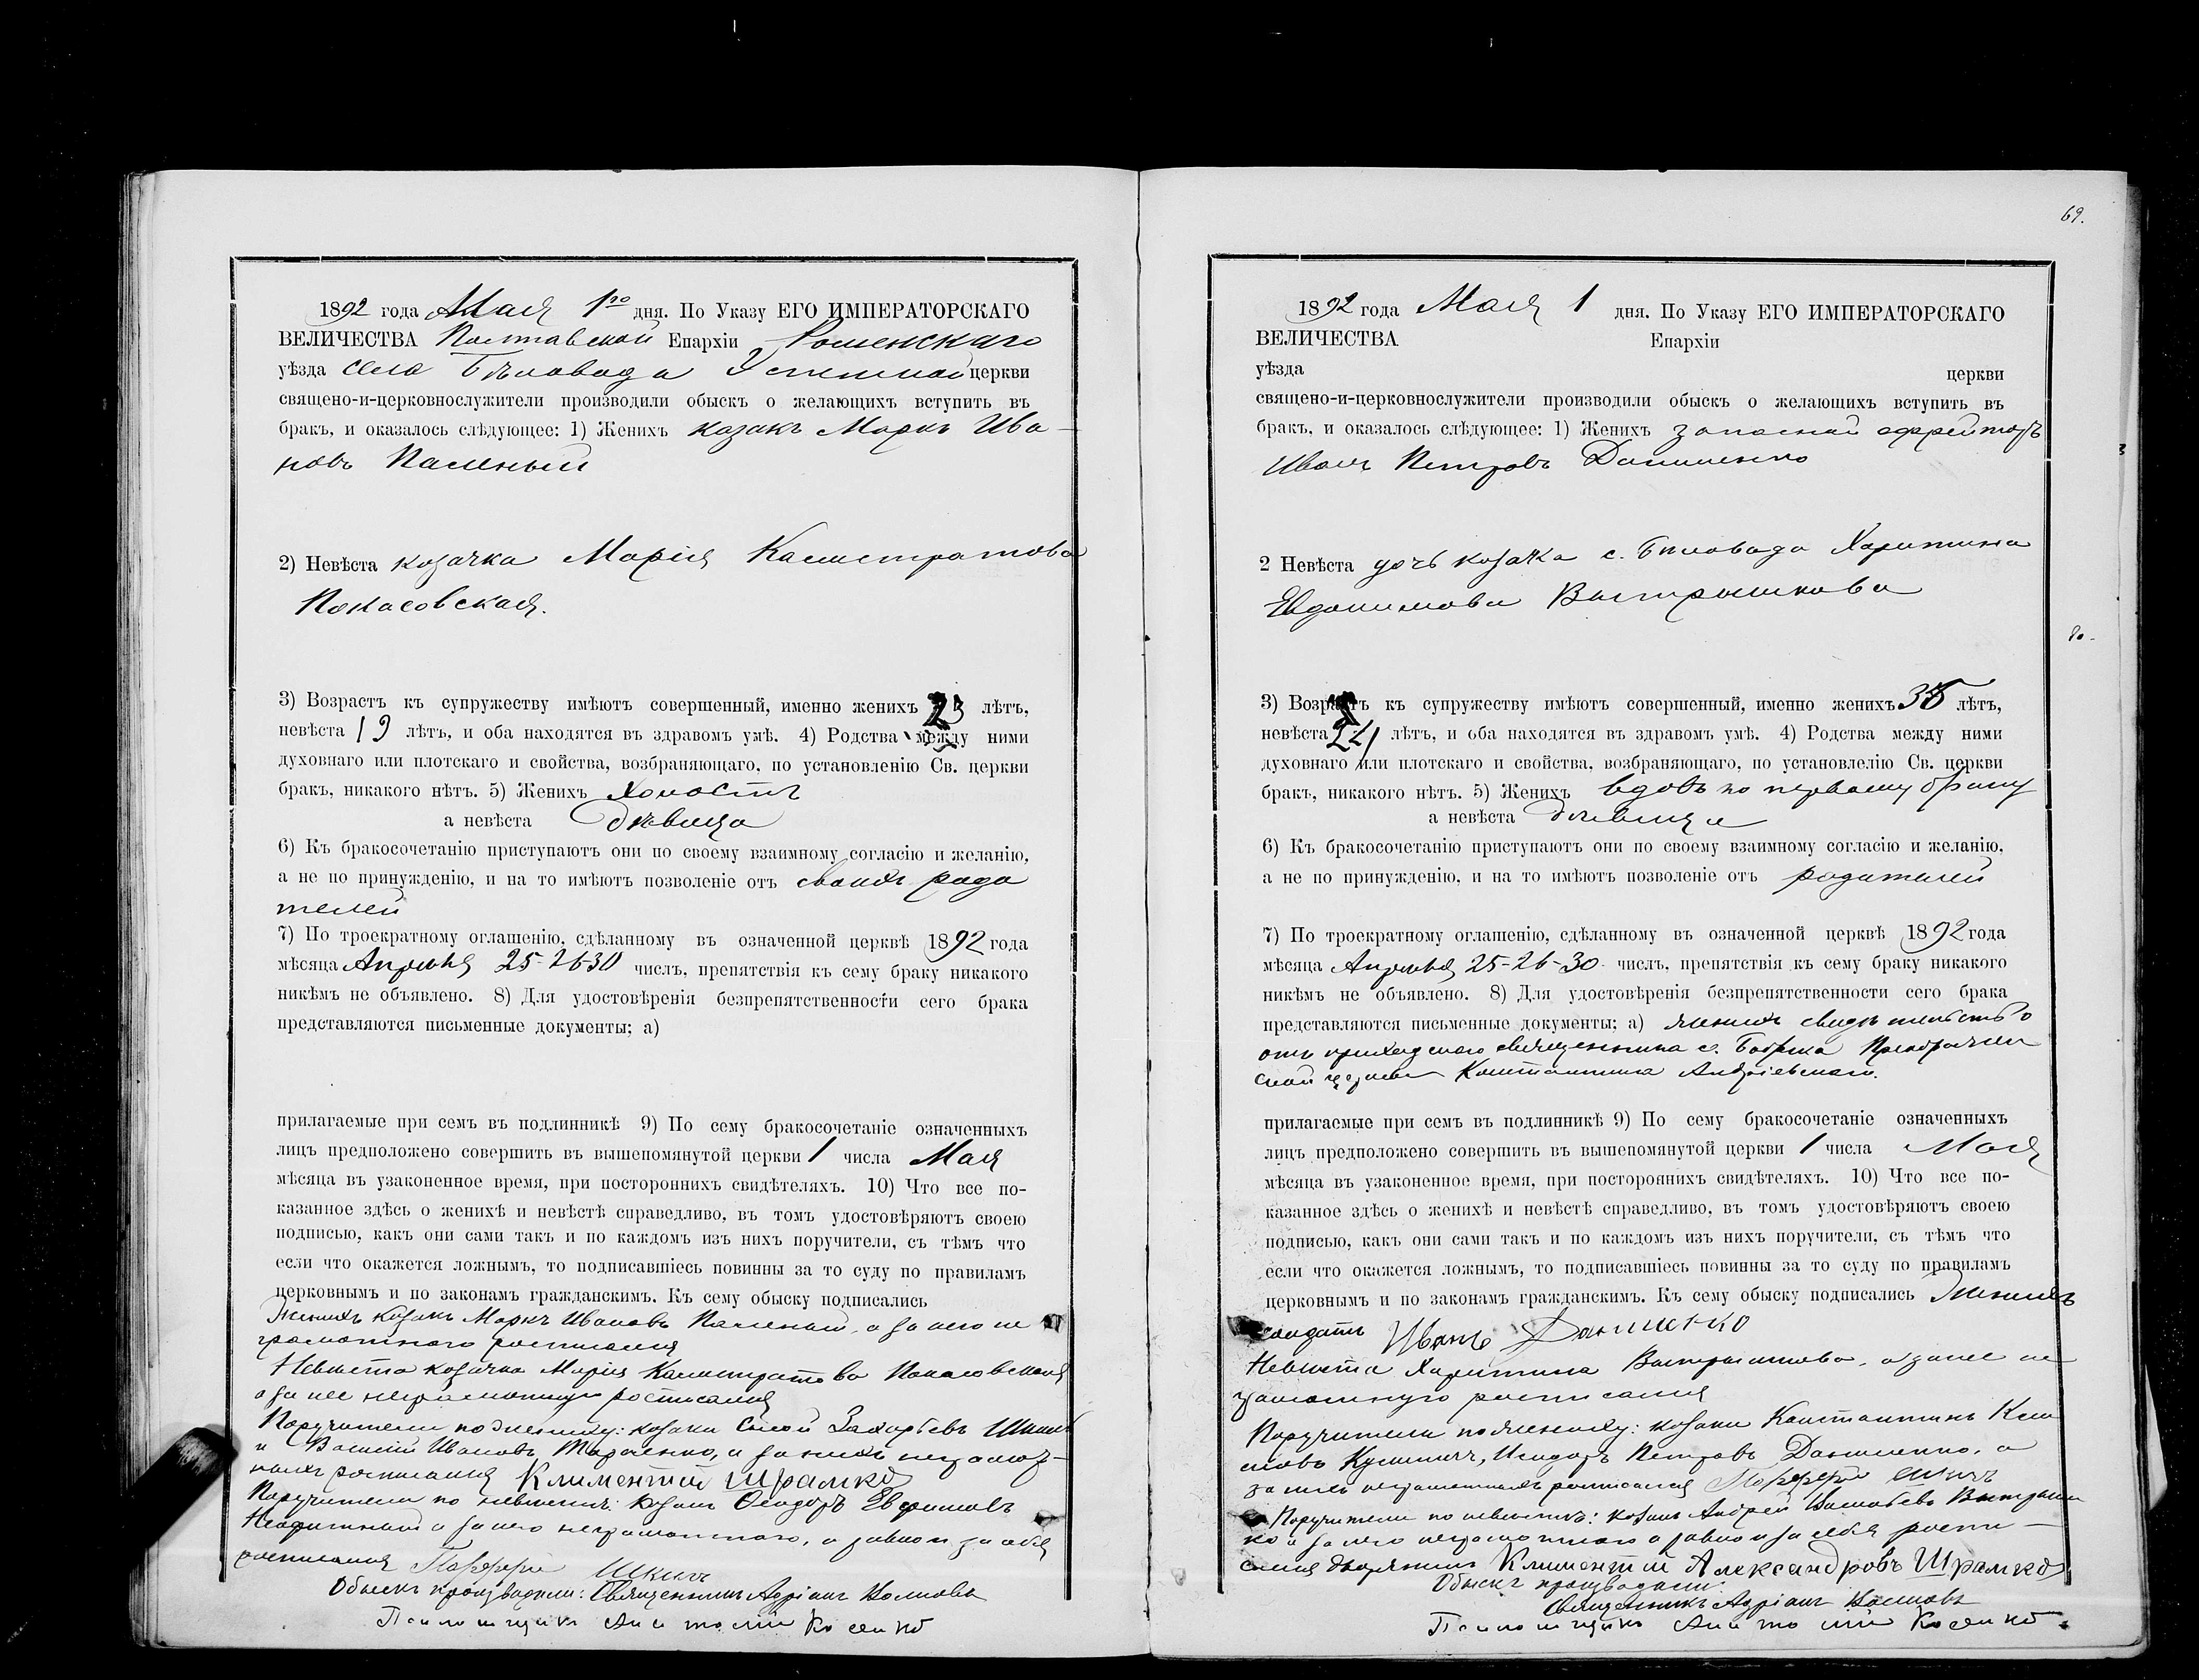 1892 года Мая 1го дня. По Указу ЕГО ИМПЕРАТОРСКАГО
ВЕЛИЧЕСТВА Полтавской Епархіи Роменскаго
уѣзда села Бѣловода Успенской церкви
священо-и-церковнослужители производили обыскъ о желающихъ вступить въ
бракъ, и оказалось слѣдующее: 1) Женихъ козакъ Маркъ Ива-
новъ Паленый
2) Невѣста козачка Марія Калистратова
Покасовская.
3) Возрастъ къ супружеству имѣютъ совершенный, именно женихъ 23 лѣтъ,
невѣста 19 лѣтъ, и оба находятся въ здравомъ умѣ. 4) Родства между ними
духовнаго или плотскаго и свойства, возбраняющаго, по установленію Св. церкви
бракъ, никакого нѣтъ. 5) Женихъ холостъ
а невѣста дѣвица
6) Къ бракосочетанію приступаютъ они по своему взаимному согласію и желанію,
а не по принужденію, и на то имѣютъ позволеніе отъ своихъ роди
телей
7) По троекратному оглашенію, сдѣланному въ означенной церквѣ 1892 года
мѣсяца Апрѣля 25-26-30 числъ, препятствія къ сему браку никакого
никѣмъ не объявлено. 8) Для удостовѣренія безпрепятственности сего брака
представляются письменные документы; а)
прилагаемые при семъ въ подлинникѣ 9) По сему бракосочетаніе означенныхъ
лицъ предположено совершить въ вышепомянутой церкви 1 числа Мая
мѣсяца въ узаконенное время, при постороннихъ свидѣтеляхъ. 10) Что все по-
казанное здѣсь о женихѣ и невѣстѣ справедливо, въ томъ удостовѣряютъ своею
подписью, какъ они сами такъ и по каждомъ изъ нихъ поручители, съ тѣмъ что
если что окажется ложнымъ, то подписавшіесь повинны за то суду по правиламъ
церковнымъ и по законамъ гражданскимъ. Къ сему обыску подписались
Женихъ козакъ Маркъ Ивановъ Паленый, а за него не
грамотнаго росписался
Невѣста козачка Марія Калистратова Покасовская
а за нее неграмотную росписался
Поручители по жениху: козаки Сысой Захарьевъ Шкиль
и Василій Ивановъ Тарасенко, а за нихъ неграмот-
ныхъ росписался Климентій Шрамко
Поручители по невѣстѣ: козакъ Ѳеодоръ Евфимовъ
а за него неграмотнаго, а равно и за себя
росписался Порфирій Шкиль
Обыскъ производили: Священникъ Адріанъ
Псаломщикъ Анатолій Косенко
69.
1892 года Мая 1 дня. По Указу ЕГО ИМПЕРАТОРСКАГО
ВЕЛИЧЕСТВА Епархіи
уѣзда церкви
священо-и-церковнослужители производили обыскъ о желающихъ вступить въ
бракъ, и оказалось слѣдующее: 1) Женихъ запасной ефрейторъ
Иванъ Петровъ Данишенко
2 Невѣста дочь козака с. Бѣловода Харитина
Евдокимова Выстрышкова
3) Возрастъ къ супружеству имѣютъ совершенный, именно женихъ 35 лѣтъ,
невѣста 24 лѣтъ, и оба находятся въ здравомъ умѣ. 4) Родства между ними
духовнаго или плотскаго и свойства, возбраняющаго, по установлелію Св. церкви
бракъ, никакого нѣтъ. 5) Женихъ вдовъ по первому браку
а невѣста дѣвица
6) Къ бракосочетанію приступаютъ они по своему взаимному согласію и желанію,
а не по принужденію, и на то имѣютъ позволеніе отъ родителей
7) По троекратному оглашенію, сдѣланному въ означенной церквѣ 1892 года
мѣсяца Апрѣля 25-26-30 числъ, препятствія къ сему браку никакого
никѣмъ не объявлено. 8) Для удостовѣренія безпрепятственности сего брака
представляются письменные документы; а) женихъ свидѣтельство
отъ приходскаго священника с. Бобрика Преображен
ской церкви Константина Андріевскаго.
прилагаемые при семъ въ подлинникѣ 9) По сему бракосочетаніе означенныхъ
лицъ предположено совершить въ вышепомянутой церкви 1 числа Мая
мѣсяца въ узаконенное время, при постороннихъ свидѣтеляхъ. 10) Что все по-
казанное здѣсь о женихѣ и невѣстѣ справедливо, въ томъ удостовѣряютъ своею
подписью, какъ они сами такъ и по каждомъ изъ нихъ поручители, съ тѣмъ что
если что окажется ложнымъ, то подписавшіесь повинны за то суду по правиламъ
церковнымъ и по законамъ гражданскимъ. Къ сему обыску подписались Женихъ
солдатъ Иванъ Данишенко
Невѣста Харитина, а за нее не
грамотную росписался
Поручители по жениху: козаки Константинъ
Исидоръ Петровъ Данишенко, а
за нихъ неграмотныхъ росписался Порфирій Шкиль
Поручители по невѣстѣ: козакъ Андрей
ко а за него неграмотнаго а равно и за себя роспи-
сался дворянинъ Климентій Александровъ Шрамко
Обыскъ производили:
Священникъ Адріанъ
Псаломщикъ Анатолій Косенко.